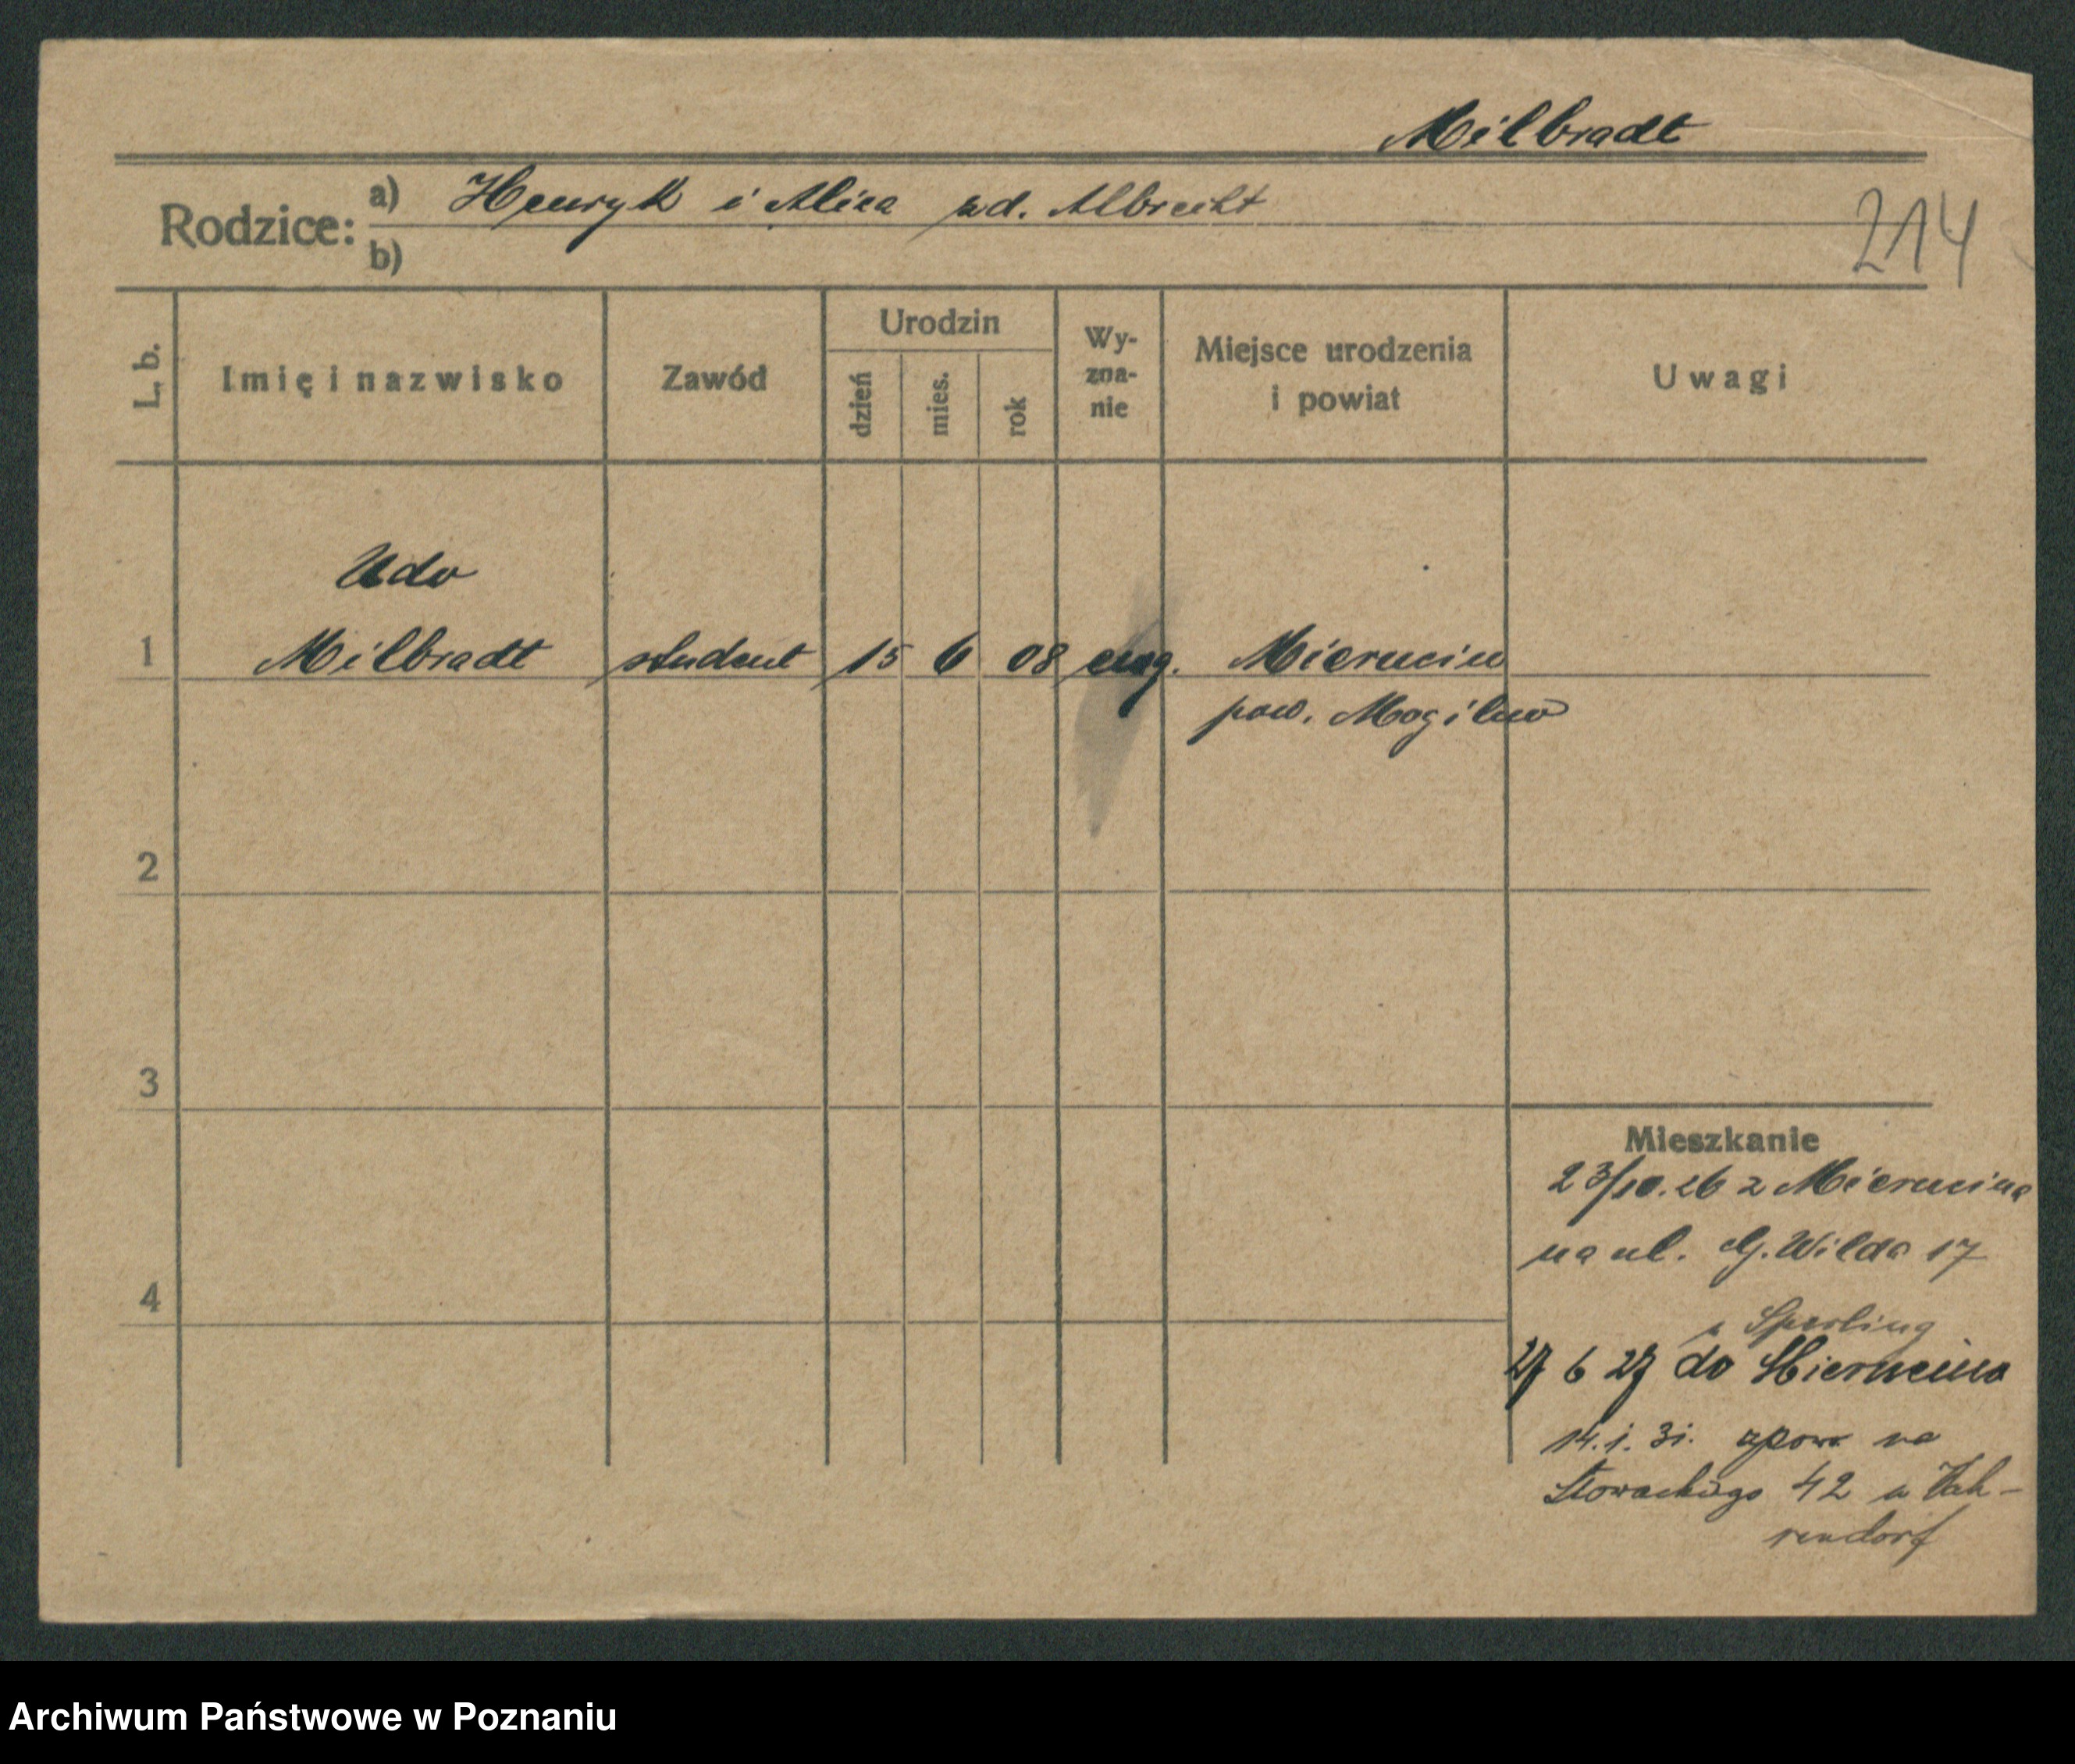 Milbradt
Rodzice: a) Henryk i Alica zd. Albrecht
b)
214
L. b. Imię i nazwisko Zawód Urodzin dzień mies. rok Wy-zna-nie Miejsce urodzenia i powiat Uwagi
Udo
1 Milbradt student 15 6 08 ewg. Mierucin
pow. Mogilno
2
3
4
Mieszkanie
23/10.26 z Mierucina
na ul. G. Wilda 17
u Sperling
27 6 27 do Mierucina
14.1.31. zpow na
Słowackiego 42 u Vah-
rendorf
Archiwum Państwowe w Poznaniu